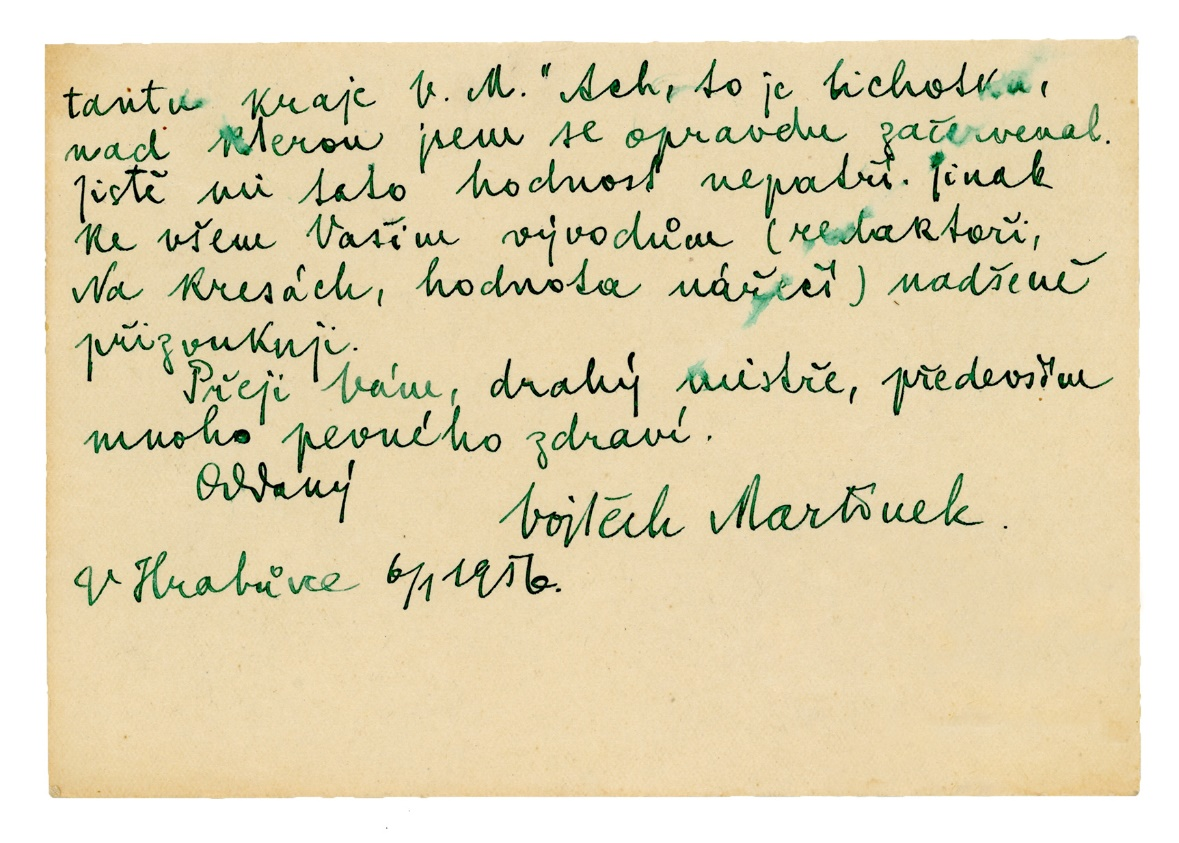 tantu kraje V. M." Ach, to je lichotka,
nad kterou jsem se opravdu začervenal.
Jistě mi tato hodnost nepatří. Jinak
ke všem Vašim vývodům (redaktoři,
Na Kresách, hodnota nářečí) nadšeně
přizvukuji.
Přeji Vám, drahý mistře, především
mnoho pevného zdraví.
Oddaný
Vojtěch Martínek.
V Hrabůvce 6/1 1956.